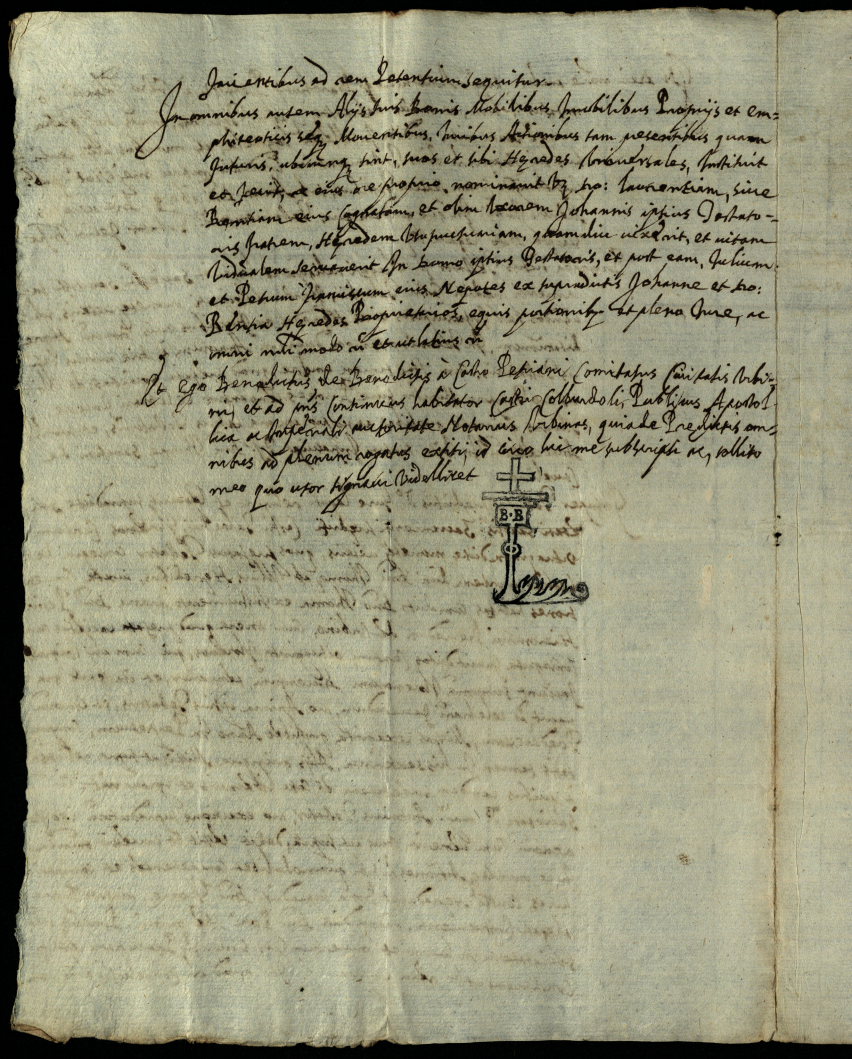 ad rem sequitur
In omnibus autem Alijs suis Bonis Mobilibus, Imobilibus Proprijs et em=
phiteoticis seq Moventibus, Iuribus Actionibus tam presentibus quam
futuris, ubicunq sint, suos et sibi Hęredes Universales, Instituit
et fecit, ac eius ore proprio nominavit Dnam Laurentiam, sive
eius Cognatam, et olim Uxorem Johannis ipsius Testato=
ris fratrem, Hęredem Usufructuariam, quamdiu vixerit, et vitam
Vidualem servaverit In Domo ipsius Testatoris, et post eam, Julium
et Petrum eius Nepotes ex supradictis Johanne et
Hęredes Proprietarios, equis portionibq et pleno Iure, ac
omni modo et ut latius
Et Ego Benedictus de Benedictis à Castro Petriani Comitatus Civitatis Urbi=
ni, et ad pns Continuus habitator Castri Colbordoli, Publicus Apostol=
lica ac Imperiali auctoritate Notarius Urbinas, quia de Predictis om=
nibus ad plenum rogatus extiti, id circo hic me subscripsi ac, sollito
meo quo utor signavi Videllicet
B·B